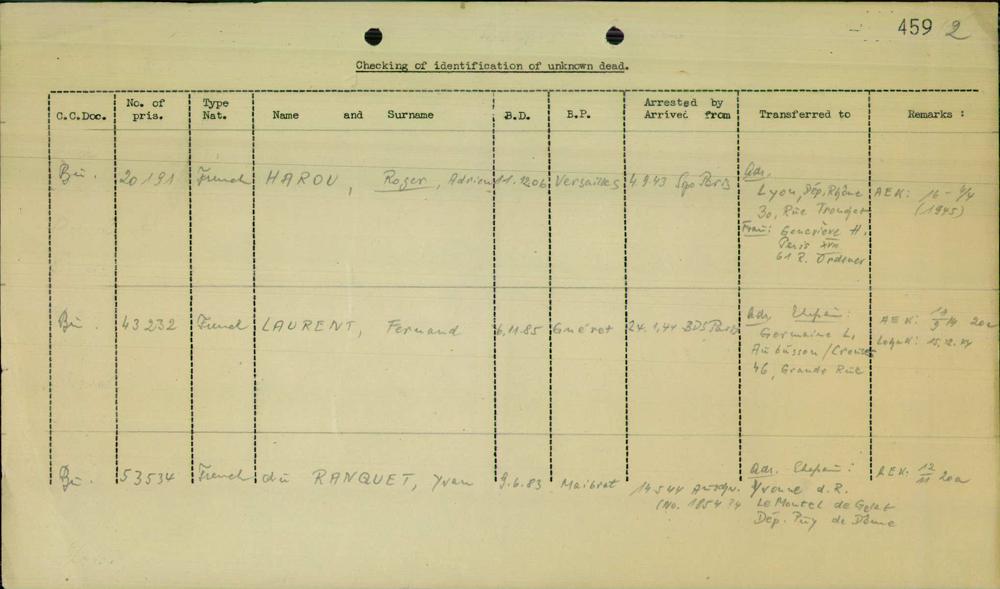 459 2
Checking of identification of unknown dead.
C.C.Doc. No. of pris. Type Nat. Name and Surname B.D. B.P. Arrested by Arrived from Transferred to Remarks :
Bu. 20191 French HAROU, Roger, Adrien 11.12.06 Versailles 4.9.43 Sipo Paris Adr.
Lyon, Dép. Rhône AEK: 16 - 4/4
30, Rue (1945)
Frau: Geneviève H.
Paris XVIII
61 R. Ordener
Bu. 43232 French LAURENT, Fernand 6.11.85 Guéret 24.1.44 BDS Paris Adr. Ehefrau: AEK:
Germaine L. 15.12.44
Aubusson/Creuse
46, Grande Rue
Bu. 53534 French du RANQUET, Yvan 9.6.83 14.5.44 Adr. Ehefrau: AEK: 12/11 20a
(No. Yvonne d. R.
Le Montel de Gelat
Dép. Puy de Dôme